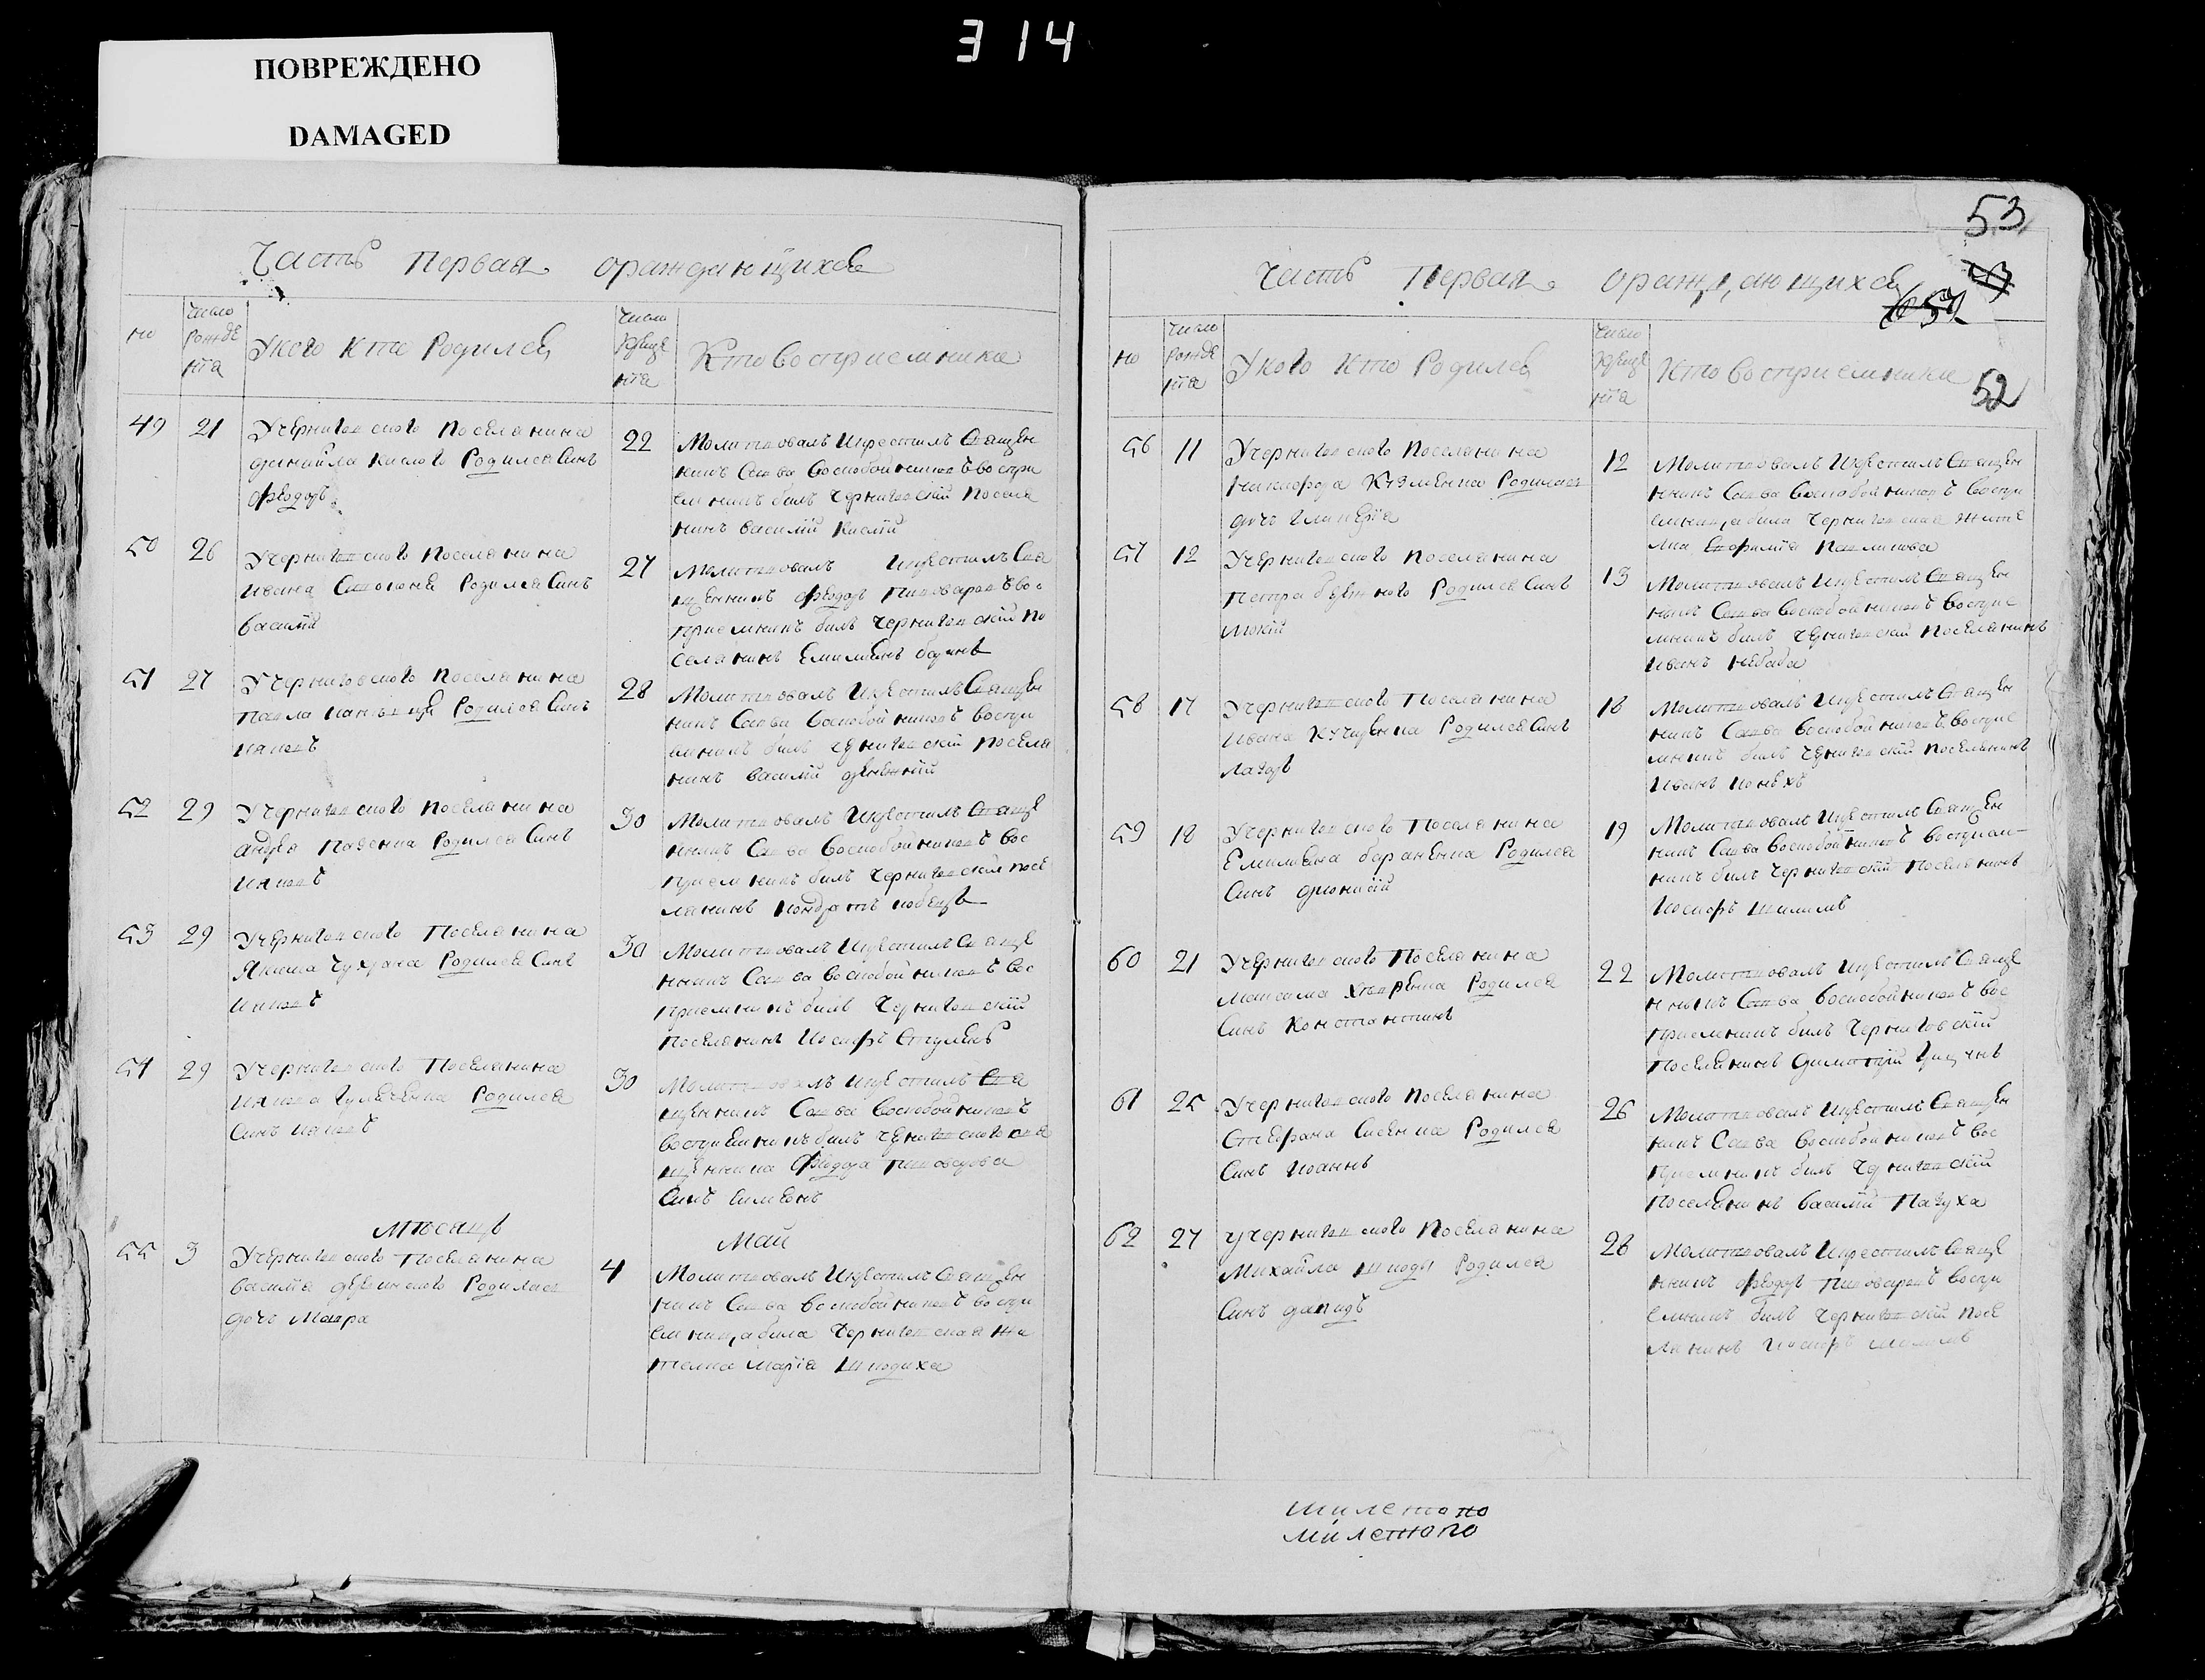 314
ПОВРЕЖДЕНО
DAMAGED
Часть Первая ораждающихся
но
число рожде нїа
Укого Кто Родился
число крще нїа
Кто восприемника
49 21
Учернигов ского Поселанина
данийла кислого Родился Синъ
Феодоръ
22
Молитвовалъ Икрестилъ Священ
никъ Савва Воскобойниковъ воспри
емникъ билъ Черниговскїй посела
нинъ василїй кислїй
50 26
Учерниговского Поселанина
ивана Родился Синъ
василїй
27
Молитвовалъ Икрестилъ Свя
щенникъ Феодоръ Пивоваровъ вос
приемникъ билъ Черниговскїй по
селанинъ Емилианъ
51 27
Учерниговского Поселанина
Павла Родился Синъ
иаковъ
28
Молитвовалъ Икрестилъ Священ
никъ Савва Воскобойниковъ воспри
емникъ билъ Черниговскїй посела
нинъ василїй
52 29
Учерниговского поселанина
андрея Родился Синъ
иаковъ
30
Молитвовалъ Икрестилъ Свяще
нникъ Савва Воскобойниковъ вос
приемникъ билъ Черниговскїй посе
ланинъ кондратъ
53 29
Учерниговского Поселанина
Якима Родился Синъ
иаковъ
30
Молитвовалъ Икрестилъ Свяще
нникъ Савва Воскобойниковъ вос
приемникъ билъ Черниговскїй
поселанинъ Иосифъ
54 29
Учерниговского Поселанина
иакова Родился
Синъ иаковъ
30
Молитвовалъ Икрестилъ Свя
щенникъ Савва Воскобойниковъ
восприемникъ билъ Черниговского свя
щенника Феодора Пивоварова
Синъ Симеонъ
мѣсяцъ Май
55 3
Учерниговского Поселанина
василїа Родилась
дочъ Мавра
4
Молитвовалъ Икрестилъ Священ
никъ Савва Воскобойниковъ воспри
емница била Черниговская жи
телка марїа шкодиха
53
52
Часть Первая ораждающихся
но
число рожде нїа
Укого Кто Родился
число крще нїа
Кто восприемника
56 11
Учерниговского Поселанина
Никифора Кузменка Родилась
дочъ Гликерїа
12
Молитвовалъ Икрестилъ Священ
никъ Савва Воскобойниковъ воспри
емница била Черниговская жите
лка Евфимїа Павликова
57 12
Учерниговского поселанина
петра Родился Синъ
мокїй
13
Молитвовалъ Икрестилъ Священ
никъ Савва Воскобойниковъ восприе
мникъ билъ Черниговскїй Поселанинъ
иванъ небаба
58 17
Учерниговского Поселанина
ивана Кучеренка Родился Синъ
лазаръ
18
Молитвовалъ Икрестилъ Священ
никъ Савва Воскобойниковъ восприе
мникъ билъ Черниговскїй Поселанинъ
Иванъ
59 18
Учерниговского Поселанина
Емилиана бараненка Родился
Синъ дионисїй
19
Молитвовалъ Икрестилъ Священ
никъ Савва Воскобойниковъ восприем
никъ билъ Черниговскїй Поселанинъ
Иосифъ
60 21
Учерниговского Поселанина
максима Родился
Синъ Константинъ
22
Молитвовалъ Икрестилъ Свяще
нникъ Савва Воскобойниковъ вос
приемникъ билъ Черниговскїй
Поселанинъ Димитрїй
61 25
Учерниговского поселанина
Стефана Родился
Синъ иоаннъ
26
Молитвовалъ Икрестилъ Священ
никъ Савва Воскобойниковъ вос
приемникъ билъ Черниговскїй
поселанинъ василїй Пазуха
62 27
учерниговского поселанина
Михайла шкоды Родился
Синъ давидъ
28
Молитвовалъ Икрестилъ Свяще
нникъ Феодоръ Пивоваровъ воспри
емникъ билъ Черниговскїй посе
ланинъ Иосифъ